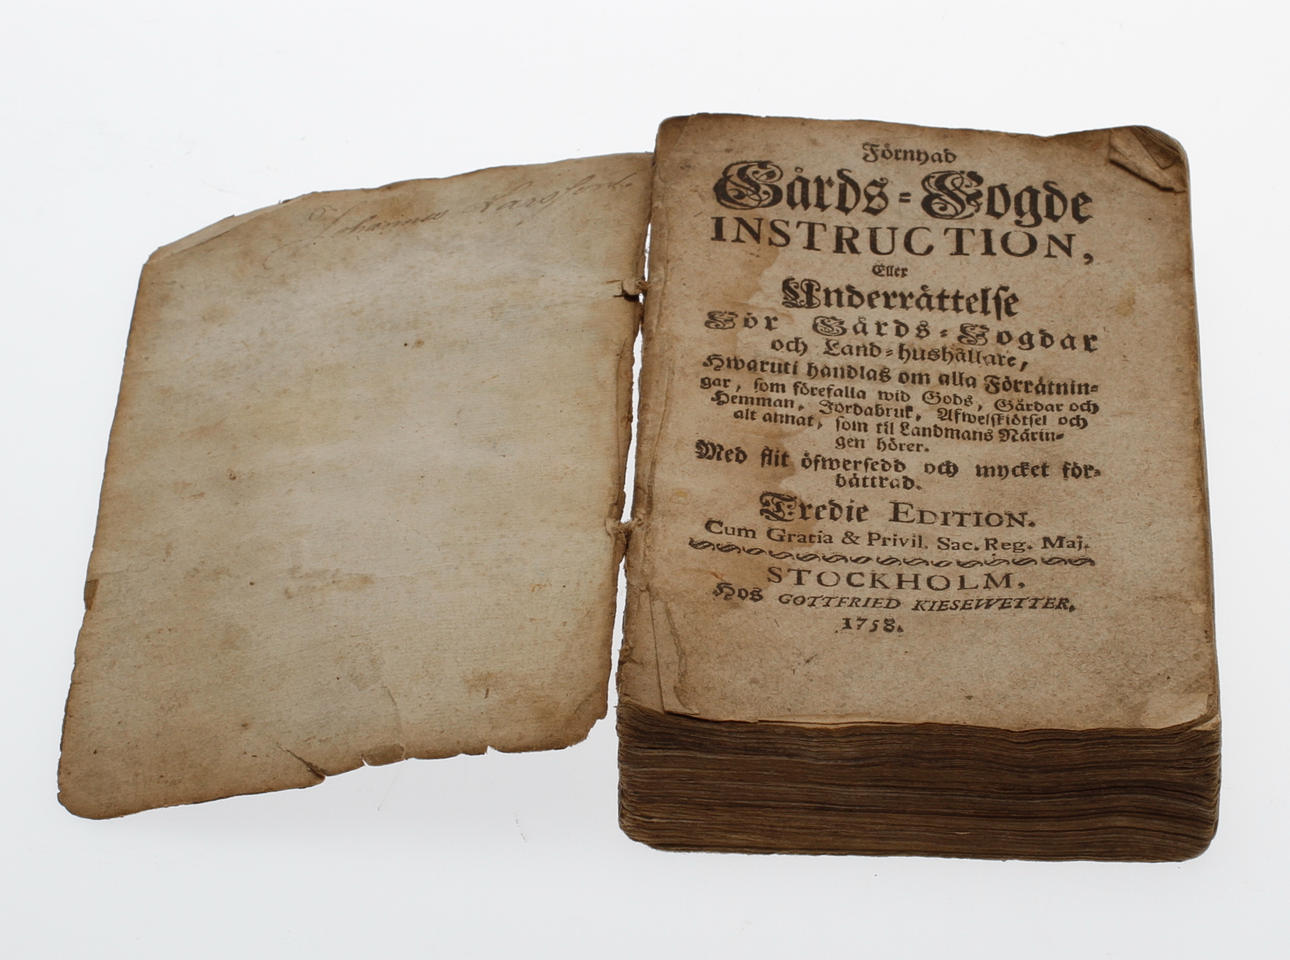 Johannes
Förnyad
Gårds-Fogde
INSTRUCTION,
Eller
Underrättelse
För Gårds-Fogdar
och Land-hushållare,
Hwaruti handlas om alla Förrätnin-
gar, som förefalla wid Gods, Gårdar och
Hemman, Jordabruk, Afwelskiötsel och
alt annat, som til Landmans Närin-
gen hörer.
Med flit öfwersedd och mycket för-
bättrad.
Tredie EDITION.
Cum Gratia & Privil. Sac. Reg. Maj.
STOCKHOLM.
Hos GOTTFRIED KIESEWETTER.
1758.